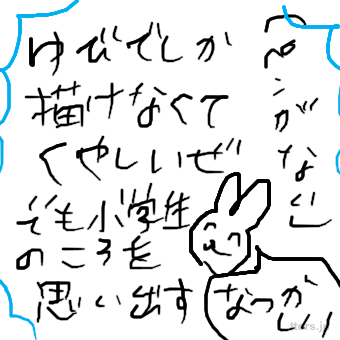 ゆびでしか
描けなくて
くやしいぜ
でも小学生
のころを
思い出す
(ペンがない)
なつかしい